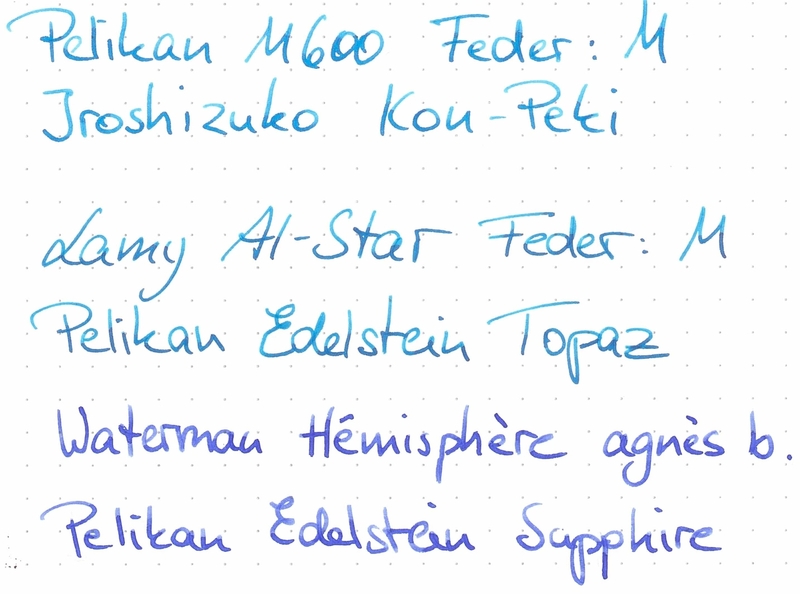 Pelikan M600 Feder: M
Iroshizuko Kon-Peki
Lamy Al-Star Feder: M
Pelikan Edelstein Topaz
Waterman Hémisphère agnès b.
Pelikan Edelstein Sapphire